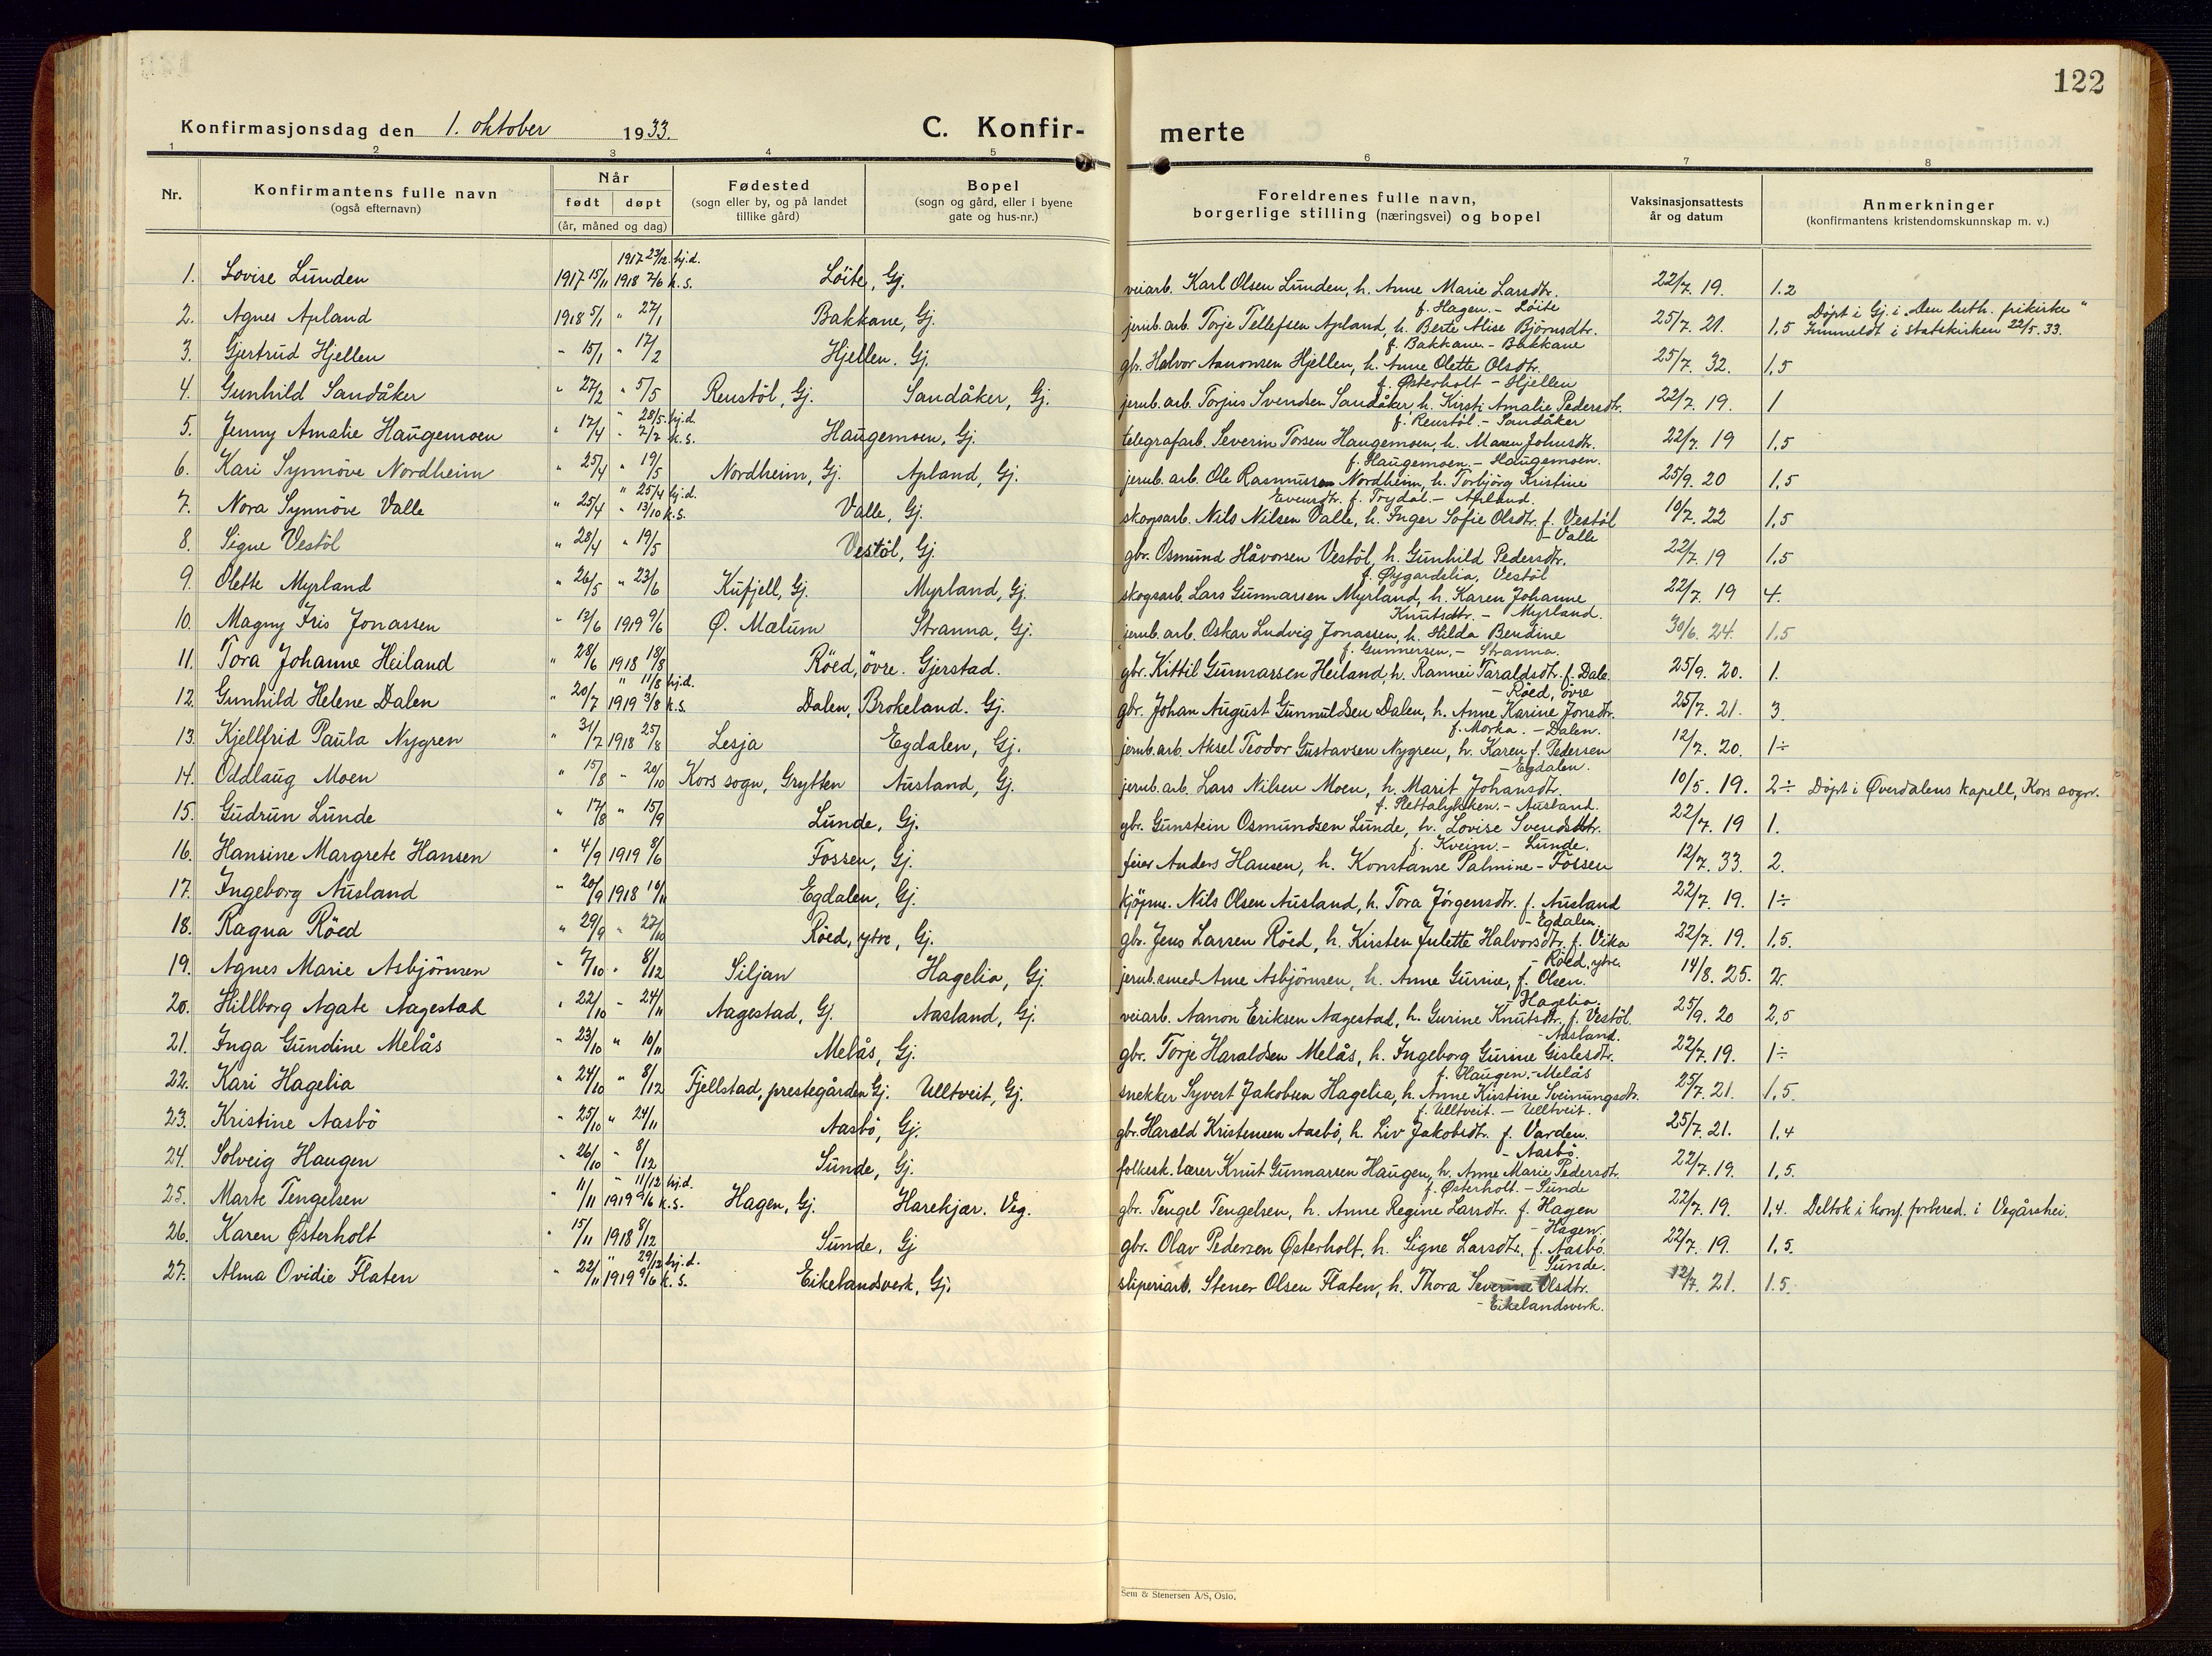 122
Konfirmasjonsdag den 1. oktober 1933.
C. Konfir- merte
1 2 3 4 5 6 7 8
Nr. Konfirmantens fulle navn (også efternavn) Når født døpt (år, måned og dag) Fødested (sogn eller by, og på landet tillike gård) Bopel (sogn og gård, eller i byene gate og hus-nr.) Foreldrenes fulle navn, borgerlige stilling (næringsvei) og bopel Vaksinasjonsattests år og datum Anmerkninger (konfirmantens kristendomskunnskap m. v.)
1917 23/12 hj.d.
1. Lovise Lunden 1917 15/11 1918 2/6 k.s. Löite, Gj. veiarb. Karl Olsen Lunden, h. Anne Marie Larsdtr. 22/7. 19. 1.2
f. Hagen. - Löite
Döpt i Gj. i "Den luth. frikirke"
2. Agnes Apland 1918 5/1 " 27/1 Bakkane, Gj. jernb.arb. Torje Tellefsen Apland, h. Berte Alise Björnsdtr. 25/7. 21. 1,5 Innmeldt i statskirken 22/5. 33.
f. Bakkane - Bakkane
3. Gjertrud Hjellen " 15/1 " 17/2 Hjellen. Gj. gbr. Halvor Aanonsen Hjellen, h. Anne Olette Olsdtr. 25/7. 32. 1,5
f. Østerholt - Hjellen
4. Gunhild Sandåker " 27/2 " 5/5 Renstöl, Gj. Sandåker, Gj. jernb. arb. Torjus Svendsen Sandåker, h. Kirsti Amalie Pedersdtr. 22/7. 19. 1
f. Renstöl. - Sandåker
" 28/5. hj.d.
5. Jenny Amalie Haugemoen " 17/4 " 7/7 k.s. Haugemoen, Gj. telegrafarb. Severin Torsen Haugemoen, h. Maren Johnsdtr. 22/7. 19 1,5
f. Haugemoen. - Haugemoen.
6. Kari Synnöve Nordheim " 25/4 " 19/5 Nordheim, Gj. Apland, Gj. jernb. arb. Ole Rasmussen Nordheim, h. Torbjörg Kristine 25/9. 20 1,5
Evensdtr. f. Trydal. - Apland.
" 25/4 hj.d.
7. Nora Synnöve Valle " 25/4 " 13/10 k.s. Valle, Gj. skogsarb. Nils Nilsen Valle, h. Inger Sofie Olsdtr. f. Vestöl 10/7. 22 1,5
- Valle
8. Signe Vestöl " 28/4 " 19/5 Vestöl, Gj. gbr. Osmund Håvorsen Vestöl, h. Gunhild Pedersdtr. 22/7. 19 1.5
f. Øygardslia, Vestöl
9. Olette Myrland " 26/5 " 23/6 Kufjell, Gj. Myrland, Gj. skogsarb. Lars Gunnarsen Myrland, h. Karen Johanne 22/7. 19 4.
Knutsdtr. - Myrland.
10. Magny Iris Jonassen " 13/6 1919 9/6 Ø. Mælum Stranna, Gj. jernb. arb. Oskar Ludvig Jonassen, h. Hilda Bendine 30/6. 24. 1.5
f. Gunnersen, - Stranna.
11. Tora Johanne Heiland " 28/6 1918 18/8 Röed, övre. Gjerstad. gbr. Kittil Gunnarsen Heiland, h. Rannei Taraldsdtr. f. Dale. 25/9. 20. 1.
- Röed, övre
" 11/8 hj.d.
12. Gunhild Helene Dalen " 20/7 1919 3/8 k.s. Dalen, Brokeland. Gj. gbr. Johan August Gunnuldsen Dalen, h. Anne Karine Jonsdtr. 25/7. 21. 3.
f. Morka. - Dalen.
13. Kjellfrid Paula Nygren " 31/7 1918 25/8 Lesja Egdalen, Gj. jernb.arb. Aksel Teodor Gustavsen Nygren, h. Karen f. Pedersen 12/7. 20. 1÷
- Egdalen.
14. Oddlaug Moen " 15/8 - 20/10 Kors sogn, Grytten Ausland, Gj. jernb.arb. Lars Nilsen Moen, h. Marit Johansdtr. 10/5. 19. 2÷ Döpt i Øverdalens kapell, Kors sogn.
f. Slettalykken. - Ausland.
15. Gudrun Lunde " 17/8 " 15/9 Lunde, Gj. gbr. Gunstein Osmundsen Lunde, h. Lovise Svendsdtr. 22/7. 19 1.
f. Kveim. - Lunde.
16. Hansine Margrete Hansen " 4/9 1919 8/6 Fossen, Gj. feier Anders Hansen, h. Konstanse Palmine - Fossen 12/7. 33. 2.
17. Ingeborg Ausland " 20/9 1918 10/11 Egdalen, Gj. kjöpm. Nils Olsen Ausland, h. Tora Jörgensdtr. f. Ausland 22/7. 19. 1÷
- Egdalen.
18. Ragna Röed " 29/9 " 27/10 Röed, ytre, Gj. gbr. Jens Larsen Röed, h. Kirsten Julette Halvorsdtr. f. Vika 22/7. 19. 1,5.
- Röed, ytre.
19. Agnes Marie Asbjörnsen " 7/10 " 8/12 Siljan Hagelia, Gj. jernb.smed Arne Asbjörnsen, h. Anne Gurine, f. Olsen. 14/8. 25. 2.
- Hagelia.
20. Hillborg Agate Aagestad " 22/10 - 24/11 Aagestad, Gj. Aasland, Gj. veiarb. Aanon Eriksen Aagestad, h. Gurine Knutsdtr. f. Vestöl. 25/9. 20 2,5
- Aasland.
21. Inga Gundine Melås " 23/10 " 10/11 Melås, Gj. gbr. Torje Haraldsen Melås, h. Ingeborg Gurine Gislesdtr. 22/7. 19. 1÷
f. Haugen. - Melås
22. Kari Hagelia " 24/10 " 8/12 Fjellstad, prestegården Gj. Ulltveit, Gj. snekker Syvert Jakobsen Hagelia, h. Anne Kirstine Sveinungsdtr. 25/7. 21. 1,5.
f. Ulltveit. - Ulltveit.
23. Kristine Aasbö " 25/10 " 24/11 Aasbö, Gj. gbr. Harald Kristensen Aasbö, h. Liv Jakobsdtr. f. Varden. 25/7. 21. 1.4
- Aasbö.
24. Solveig Haugen " 26/10 " 8/12 Sunde, Gj. folkesk. lærer Knut Gunnarsen Haugen, h. Anne Marie Pedersdtr. 22/7. 19. 1,5.
f. Østerholt. - Sunde
" 11/12 hj.d.
25. Marte Tengelsen " 11/11 1919 9/6 k.s. Hagen, Gj. Harekjær. Veg. gbr. Tengel Tengelsen, h. Anne Regine Larsdtr. f. Hagen 22/7. 19. 1.4. Deltok i konf. forbered. i Vegårshei.
- Hagen.
26. Karen Østerholt " 15/11 1918 8/12 Sunde, Gj gbr. Olav Pedersen Østerholt, h. Signe Larsdtr. f. Aasbö. 22/7. 19. 1,5.
- Sunde.
" 29/12 hj.d.
27. Alma Ovidie Flaten " 22/11 1919 9/6 k.s. Eikelandsverk, Gj. sliperiarb. Stener Olsen Flaten, h. Thora Severine Olsdtr. 12/7. 21. 1.5.
- Eikelandsverk.
Sem & Stenersen A/S, Oslo.